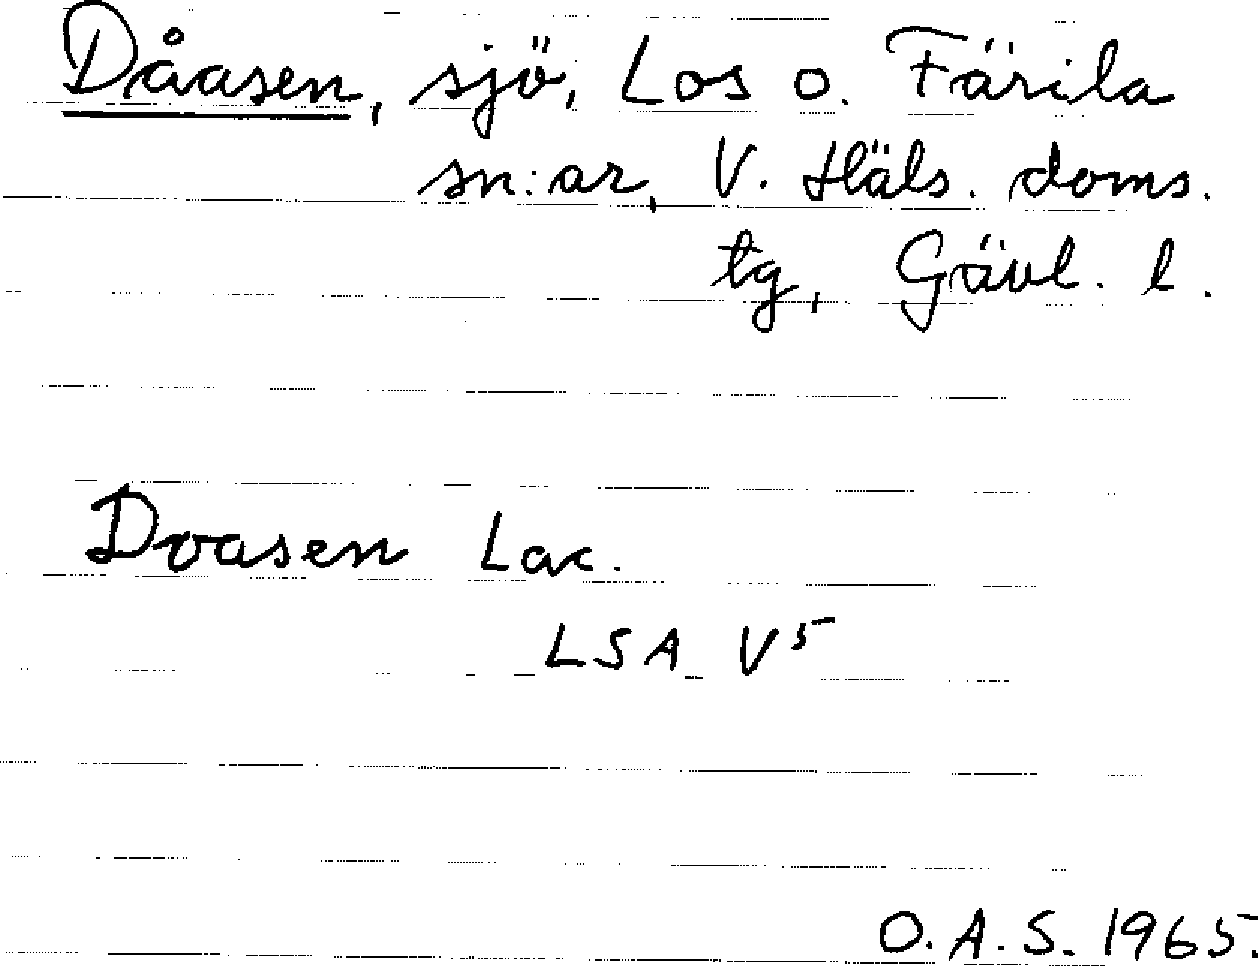 Dåasen, sjö, Los o. Färila
sn:ar, V. Häls. doms.
tg, Gävl. l.
Dvasen Lac.
LSA V5
O.A.S. 1965.